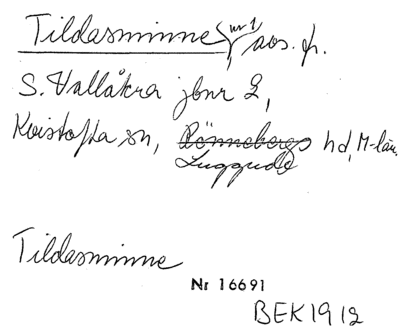 Tildasminne nr 1, avs. fr.
S. Vallåkra jbnr 2,
Kvistofta sn, Rönnebergs hd, M-län.
Luggude
Tildasminne
Nr 16691
BEK1912